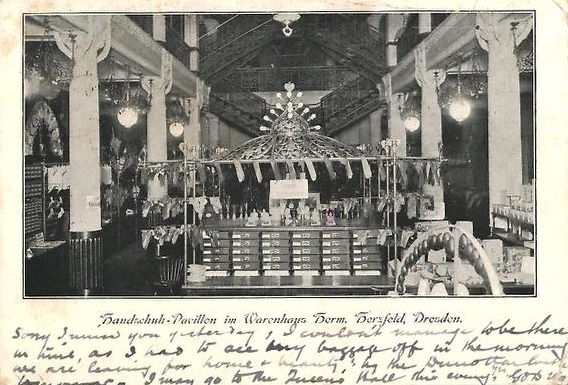 Handschuh-Pavillon im Warenhaus Herm. Herzfeld, Dresden.
Sorry I miss you yesterday, I couldn't manage to be there
in time, as I had to see my baggage off in the morning
we are leaving for home & beauty, by the
I may go to the Queens Hall this evening